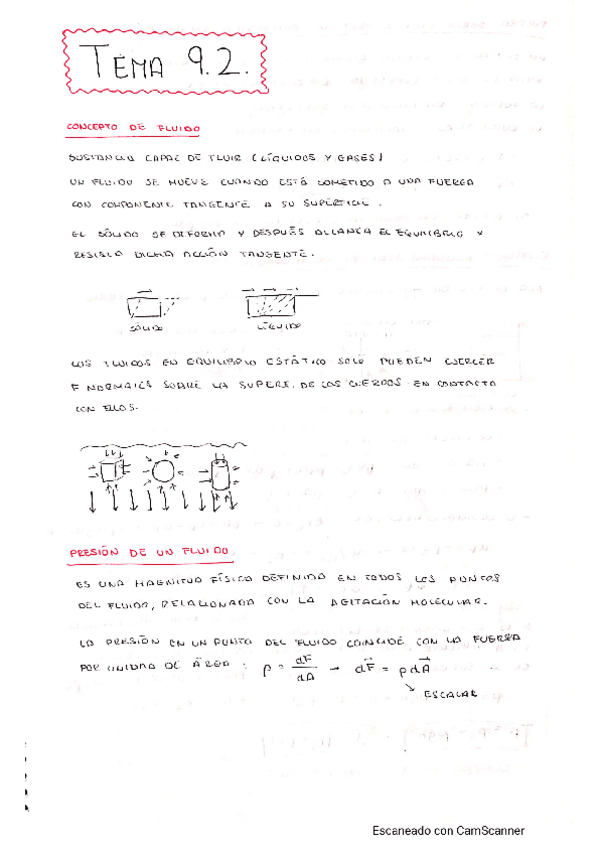 TEMA 9.2.
CONCEPTO DE FLUIDO
SUSTANCIA CAPAZ DE FLUIR (LÍQUIDOS Y GASES)
UN FLUIDO SE MUEVE CUANDO ESTÁ SOMETIDO A UNA FUERZA
CON COMPONENTE TANGENTE A SU SUPERFICIE.
EL SÓLIDO SE DEFORMA Y DESPUÉS ALCANZA EL EQUILIBRIO Y
RESISTE DICHA ACCIÓN TANGENTE.
SÓLIDO LÍQUIDO
LOS FLUIDOS EN EQUILIBRIO ESTÁTICO SOLO PUEDEN EJERCER
F NORMALES SOBRE LA SUPERF. DE LOS CUERPOS EN CONTACTO
CON ELLOS.
PRESIÓN DE UN FLUIDO
ES UNA MAGNITUD FÍSICA DEFINIDA EN TODOS LOS PUNTOS
DEL FLUIDO, RELACIONADA CON LA AGITACIÓN MOLECULAR.
LA PRESIÓN EN UN PUNTO DEL FLUIDO COINCIDE CON LA FUERZA
POR UNIDAD DE ÁREA : p = dF/dA → dF⃗ = p dA⃗
ESCALAR
Escaneado con CamScanner